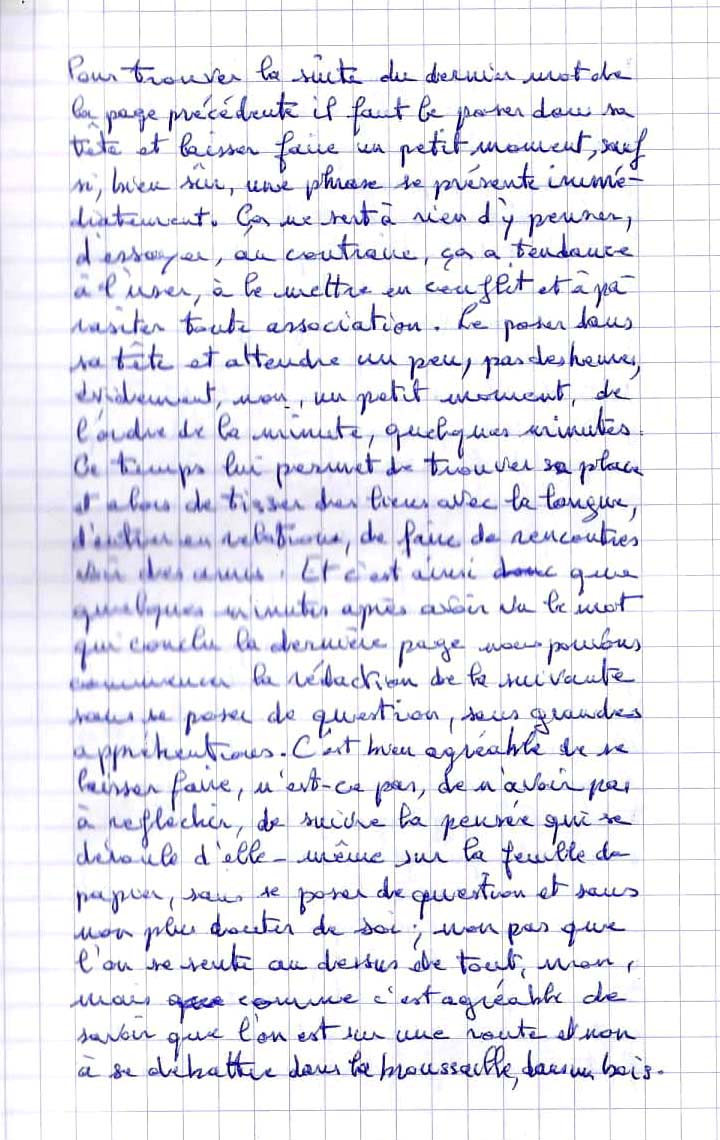 Pour trouver la suite du dernier mot de
la page précédente il faut le poser dans sa
tête et laisser faire un petit moment, sauf
si, bien sûr, une phrase se présente immé-
diatement. Ça ne sert à rien d'y penser,
d'essayer, au contraire, ça a tendance
à l'user, à le mettre en conflit et à pa-
rasiter toute association. Le poser dans
sa tête et attendre un peu, pas des heures,
évidemment, non, un petit moment, de
l'ordre de la minute, quelques minutes.
Ce temps lui permet de trouver sa place
et alors de tisser des liens avec la langue,
d'entrer en relations, de faire de rencontres
voir des amis. Et c'est ainsi donc que
quelques minutes après avoir vu le mot
qui conclu la dernière page nous pouvons
commencer la rédaction de la suivante
sans se poser de question, sans grandes
appréhentions. C'est bien agréable de se
laisser faire, n'est-ce pas, de n'avoir pas
à reflechir, de suivre la pensée qui se
déroule d'elle-même sur la feuille de
papier, sans se poser de question et sans
non plus douter de soi ; non pas que
l'on se sente au dessus de tout, non,
mais que comme c'est agréable de
savoir que l'on est sur une route et non
à se débattre dans la broussaille, dans un bois.